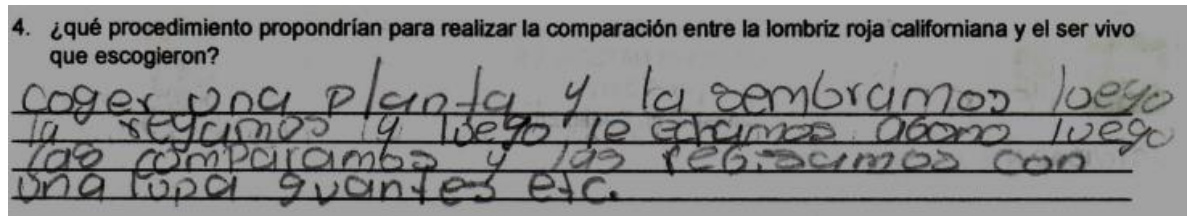 4. ¿qué procedimiento propondrían para realizar la comparación entre la lombriz roja californiana y el ser vivo
que escogieron?
coger una planta y la sembramos luego
la regamos y luego le echamos abono luego
las comparamos y las rebisamos con
una lupa guantes etc.